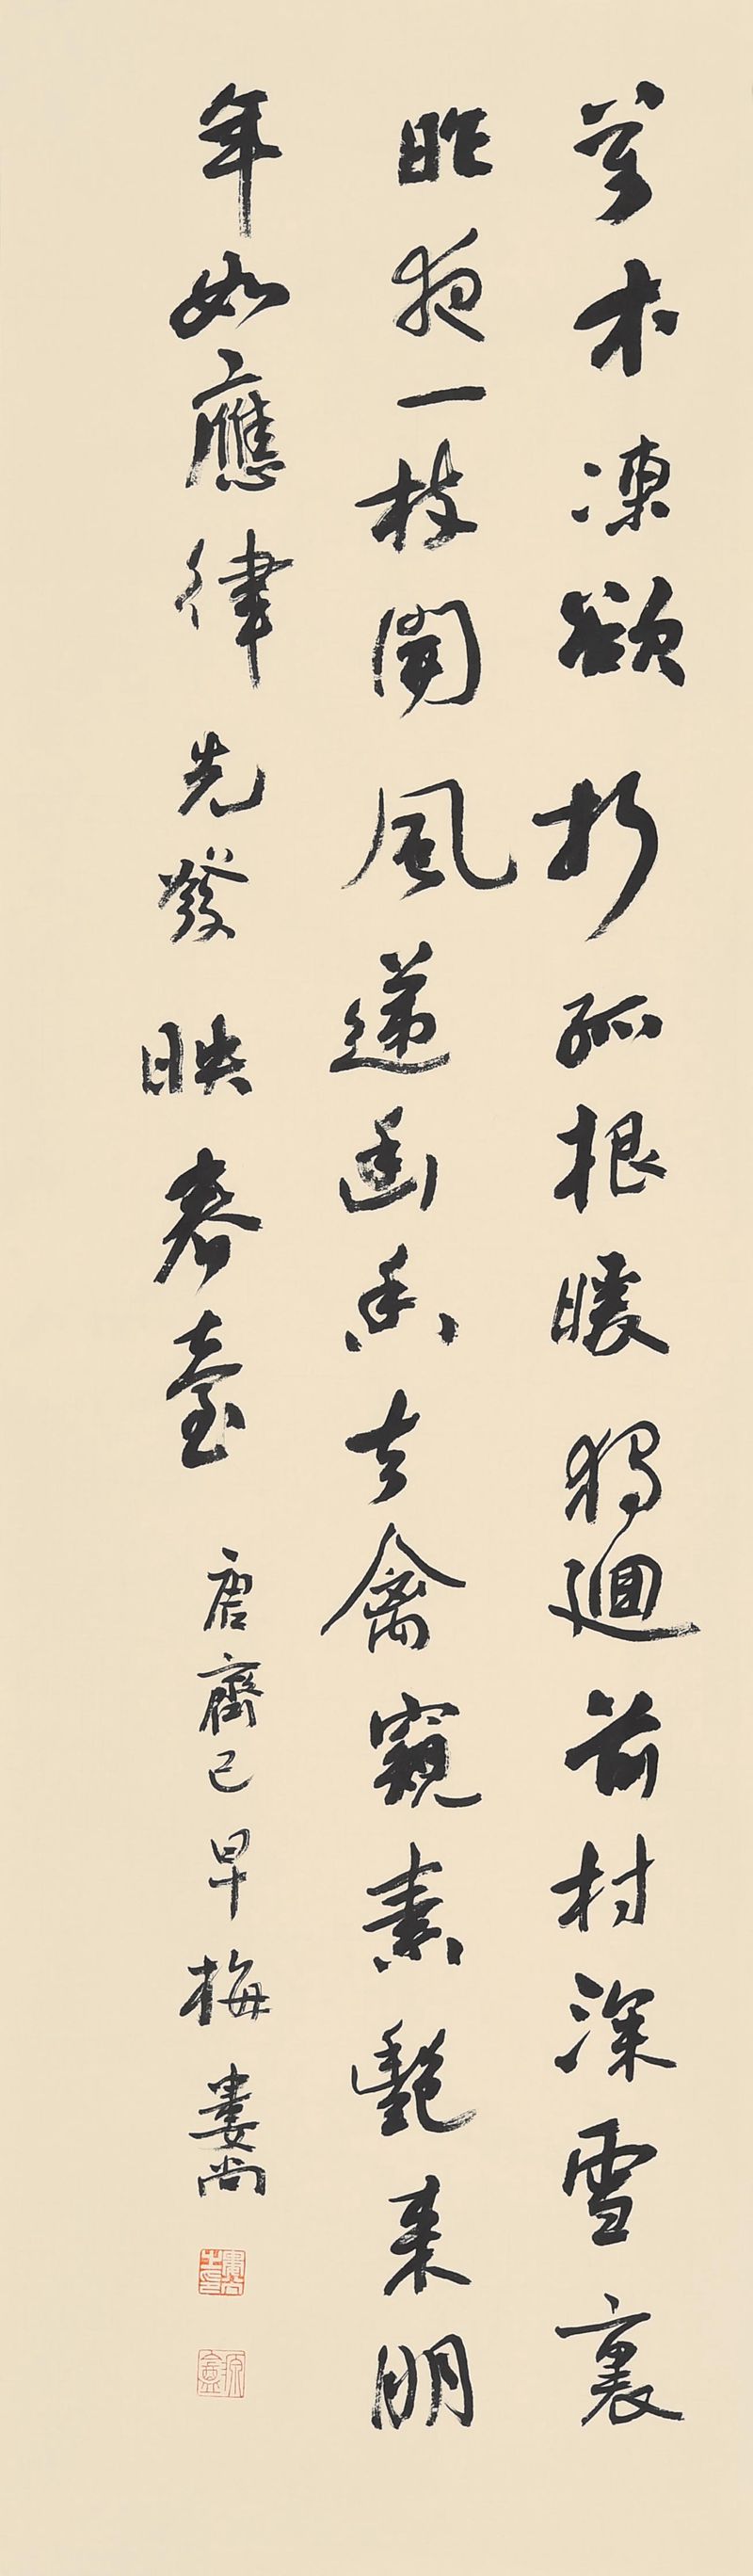 萬木凍欲折孤根暖獨迴前村深雪裏
昨夜一枝開風遞幽香去禽窺素豔来明
年如應律先發映春臺
唐齊己早梅 婁尚
婁尚之印